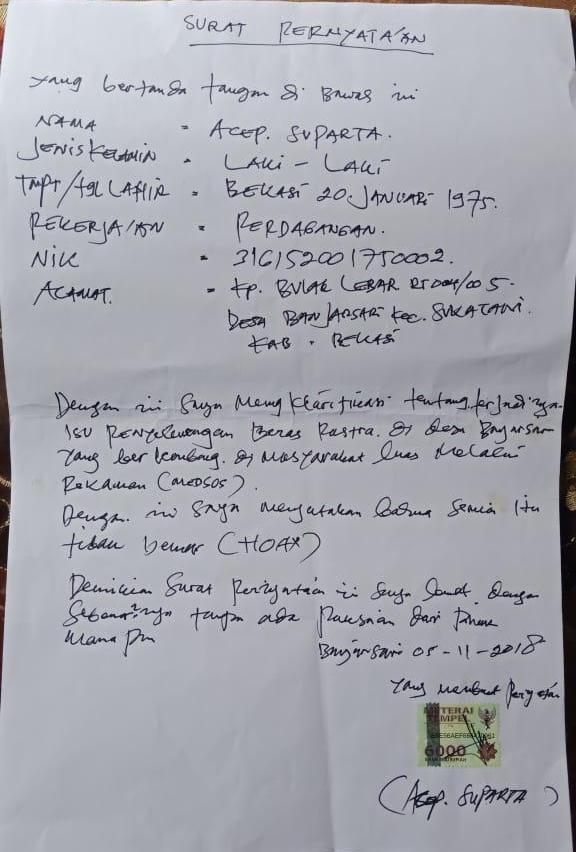 SURAT PERNYATA'AN
yang bertanda tangan di Bawah ini
NAMA = ACEP. SUPARTA.
JENIS KELAMIN = LAKI - LAKI
TMPT/TGL LAHIR = BEKASI 20 JANUARI 1975.
PEKERJA'AN = PERDAGANGAN.
NIK = 316152001750002.
ALAMAT. = Kp. BULAK LEBAR RT 004/005.
DESA BANJARSARI KEC. SUKATANI.
KAB. BEKASI
Dengan ini Saya Mengklarifikasi tentang terjadinya
ISU PENYELEWENGAN Beras Rastra. di desa Banjarsari
yang berkembang. di Masyarakat luas Melalui
Rekaman (MEDSOS).
Dengan. ini Saya menyatakan bahwa semua itu
tidak benar (HOAX)
Demikian Surat Pernyataan ini Saya buat. dengan
Sebenar²nya tanpa ada Paksaan dari Pihak
Mana Pun
Banjarsari 05-11-2018
yang membuat Pernyataan
METERAI
TEMPEL
6000
(Acep. SUPARTA)